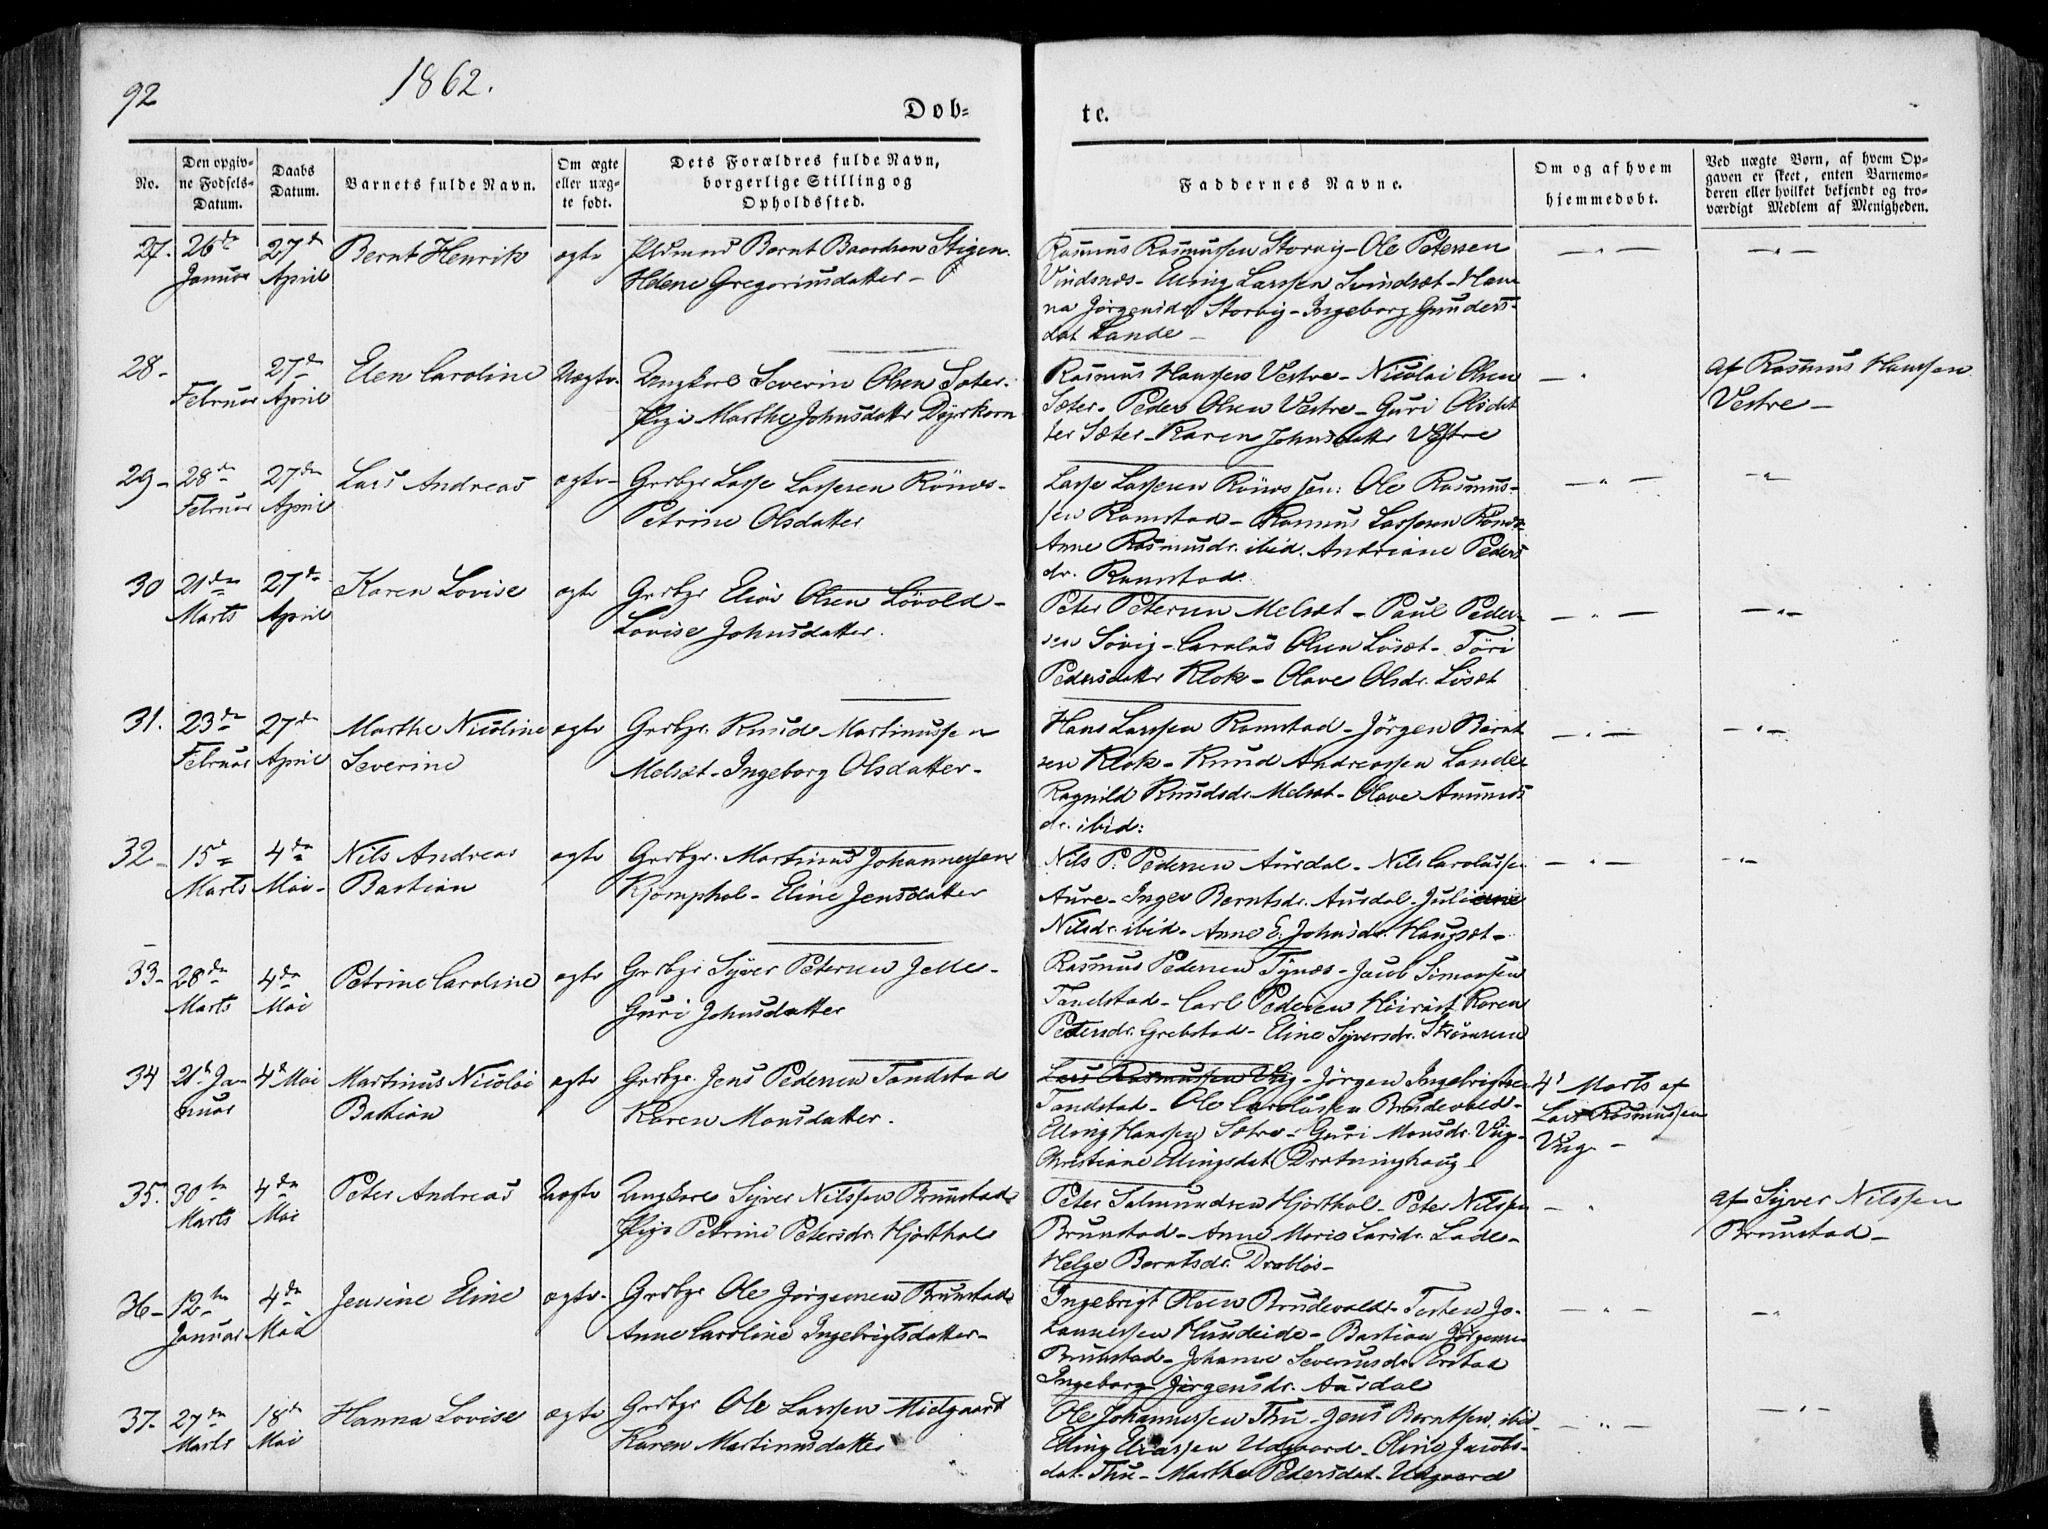 92
1862.
Døb=
te.
No.
Den opgiv-
ne Fødsels-
Datum.
Daabs
Datum.
Barnets fulde Navn.
Om ægte
eller uæg-
te født.
Dets Forældres fulde Navn,
borgerlige Stilling og
Opholdssted.
Faddernes Navne.
Om og af hvem
hjemmedøbt.
Ved uægte Børn, af hvem Op-
gaven er skeet, enten Barnemo-
deren eller hvilket bekjendt og tro-
værdigt Medlem af Menigheden.
27. 26de Januar
27de April
Bernt Henrik
ægte
Bernt Baardsen Stigen.
Helene Gregoriusdatter -
Rasmus Rasmussen Storvig - Ole Petersen
Vindsnæs - Elling Larssen Svindsæt - Han-
na Jørgensdr Storvig - Ingeborg Gunders-
dat Lande -
28-
Februar
27de April
Elen Caroline
Uægte.
Ungkarl Severin Olsen Sæter.
Pige Marthe Johnsdatter Dyrkorn
Rasmus Hanssen Vestre - Nicolai Olsen
Sæter - Peder Olsen Vestre - Guri Olsdat
ter Sæter - Karen Johnsdatter Vestre
af Rasmus Hanssen
Vestre -
29- 28de Februar
27de April
Lars Andreas
ægte-
Grbgr Lasse Lassesen Rönæs-
Petrine Olsdatter
Lasse Lassesen Rönæs sen: Ole Rasmus-
sen Ramstad - Rasmus Lassesen Rönæs
Anne Rasmusdr. ibid. Andriane Peders
dr. Ramstad.
30 21de Marts
27de April
Karen Lovise
ægte
Grbgr Elias Olsen Lövold -
Lovise Johnsdatter.
Peter Petersen Melsæt - Paul Peder-
sen Sövig - Carolus Olsen Lösæt - Töri
Pedersdatter Klok - Olave Olsdr. Lösæt
31. 23de Februar
27de April
Marthe Nicoline
Severine
ægte
Grbgr. Knud Martinussen
Melsæt - Ingeborg Olsdatter -
Hans Larssen Ramstad - Jörgen Bernt
sen Klok - Knud Andreassen Lande-
Ragnild Knudsdr. Melsæt - Olave Amunds
dr. ibid:
32- 15de Marts
4de Mai-
Nils Andreas
Bastian
ægte
Grbgr. Martinus Johannessen
Kjemphol - Eline Jensdatter
Nils P. Pedersen Aursdal - Nils Carolussen
Aure - Inger Berntsdr. Aursdal - Juliane
Nilsdr. ibid - Anne E. Johnsdr. Haugsæt -
33- 28de Marts
4de Mai
Petrine Caroline
ægte
Grbgr Syver Petersen Jelle-
Guri Johnsdatter
Rasmus Pedersen Tynæs - Jacob Simonsen
Tandstad - Carl Pedersen Karen
Petersdr. Grebstad - Eline Syversdr.
34 21de Ja-
nuar
4de Mai
Martinus Nicolai
Bastian
ægte
Grbgr. Jens Pedersen Tandstad
Karen Monsdatter.
Lars Rasmussen Vig - Jörgen Ingebrigtsen
Tandstad - Ole Carolussen Brudevold -
Elling Hanssen Sætre - Guri Monsdr. Vig -
Christiane Ellingsdat Drotninghaug -
4de Marts af
Lars Rasmussen
Vig -
35. 30te Marts
4de Mai
Peter Andreas
Uægte
Ungkarl Syver Nilssen Brunstad
Pige Petrine Petersdr. Hjorthol
Peter Salmundsen Hjorthol - Peter Nilssen
Brunstad - Anne Marie Larsdr. Lade -
Helge Berntsdr. Drabløs -
af Syver Nilssen
Brunstad -
36- 12te Januar
4de Mai
Jensine Eline
ægte-
Grbgr Ole Jørgensen Brunstad
Anne Caroline Ingebrigtsdatter -
Ingebrigt Olsen Brudevold - Torsten Jo-
hannessen Hundeide - Bastian Jørgensen
Brunstad - Johanne Severinsdr. Erstad
Ingeborg Jørgensdr. Aursdal
37- 27de Marts
18de Mai
Hanna Lovise
ægte
Grbgr Ole Larssen Midgaard
Karen Martinusdatter
Ole Johannessen Thu - Jens Berntsen, ibid
Elling Eliassen Udgaard - Oline Jacobs-
dat. Thu - Marthe Pedersdat. Udgaard